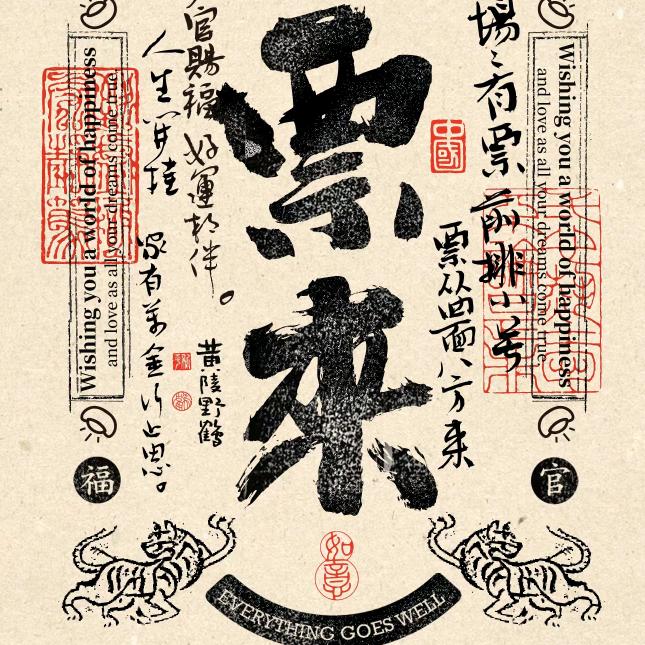 票來
場場有票前排小号
票从四面八方来
官賜福 好運相伴。
人生开挂
家有万金以止思。
黄陵野鶴
Wishing you a world of happiness
and love as all your dreams come true
Wishing you a world of happiness
and love as all your dreams come true
中國
福
官
如意
EVERYTHING GOES WELL